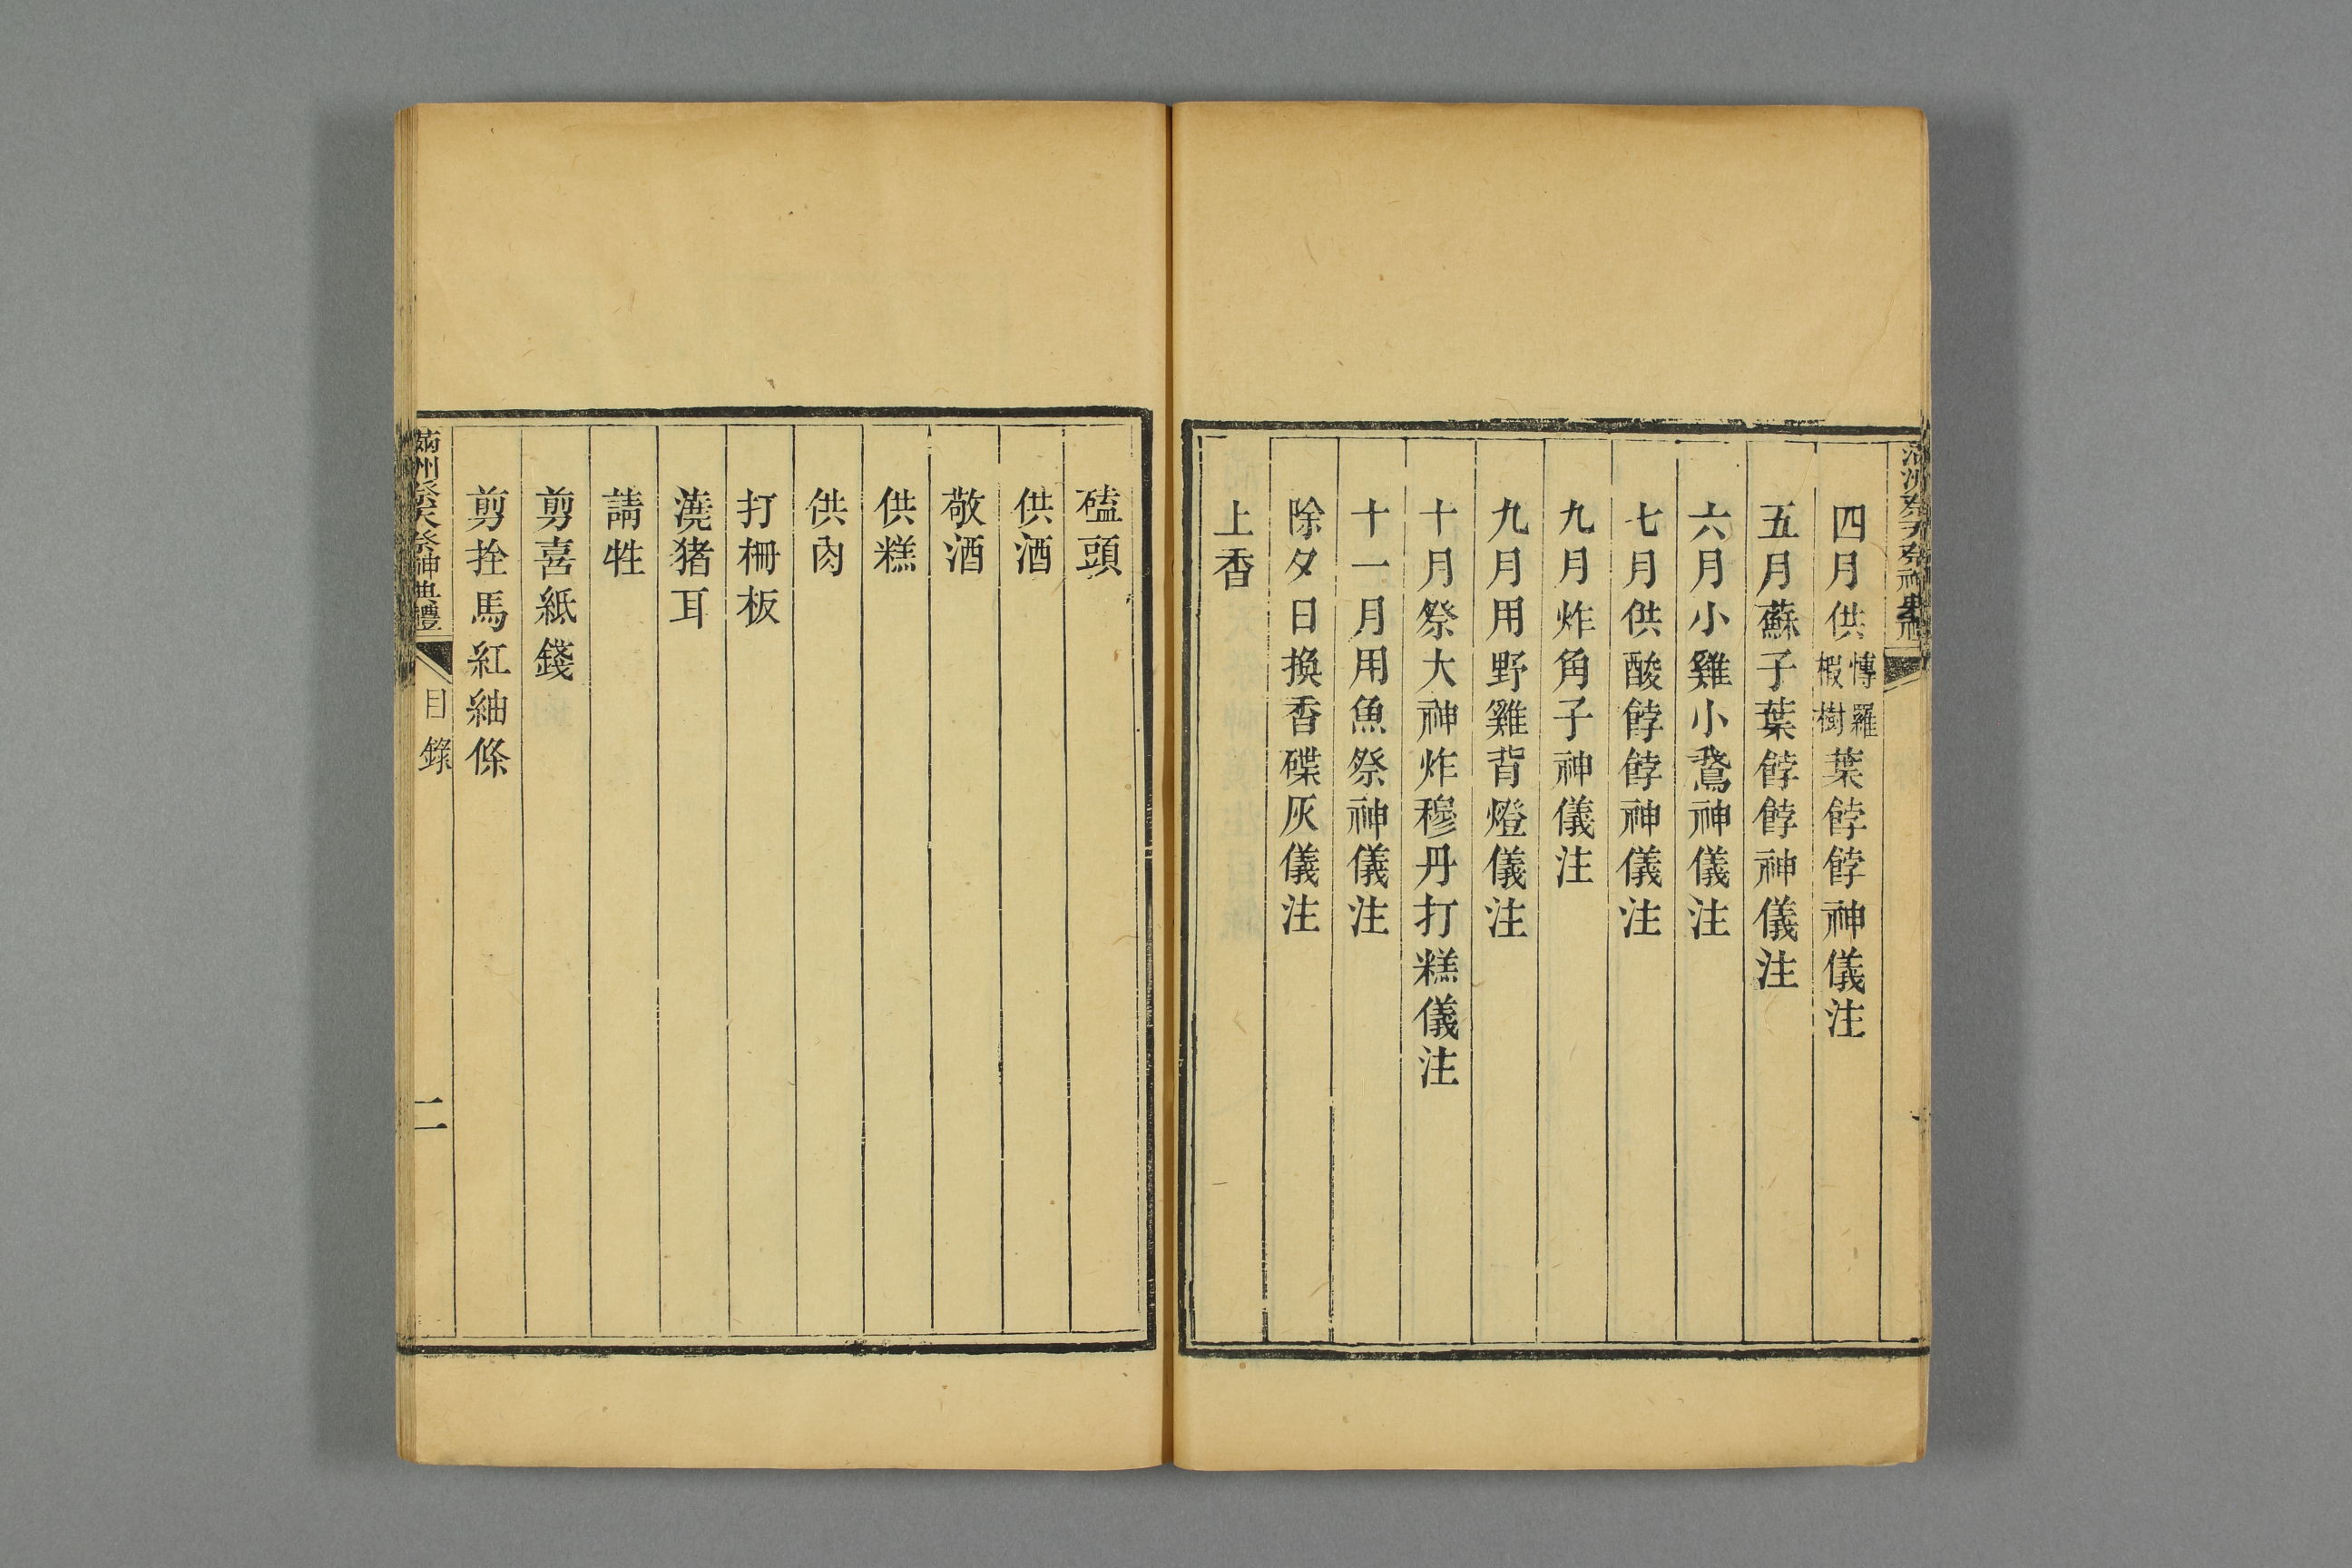 四月供愽羅椵樹葉餑餑神儀注
五月蘇子葉餑餑神儀注
六月小雞小鵞神儀注
七月供酸餑餑神儀注
九月炸角子神儀注
九月用野雞背燈儀注
十月祭大神炸穆丹打糕儀注
十一月用魚祭神儀注
除夕日換香碟灰儀注
上香
磕頭
供酒
敬酒
供糕
供肉
打柵板
澆猪耳
請牲
剪喜紙錢
剪拴馬紅紬條
祭天祭神典禮
目錄
二